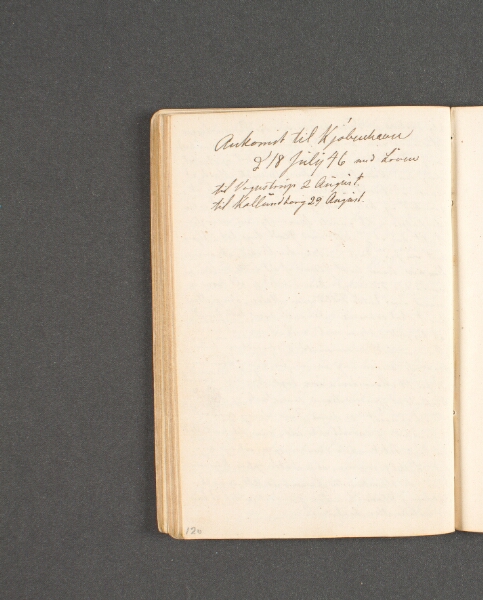 Ankomst til Kjøbenhavn
d 18 Julÿ 46 med Löven
til Vognstrup 2 August.
til Kallundborg 29 August.
120